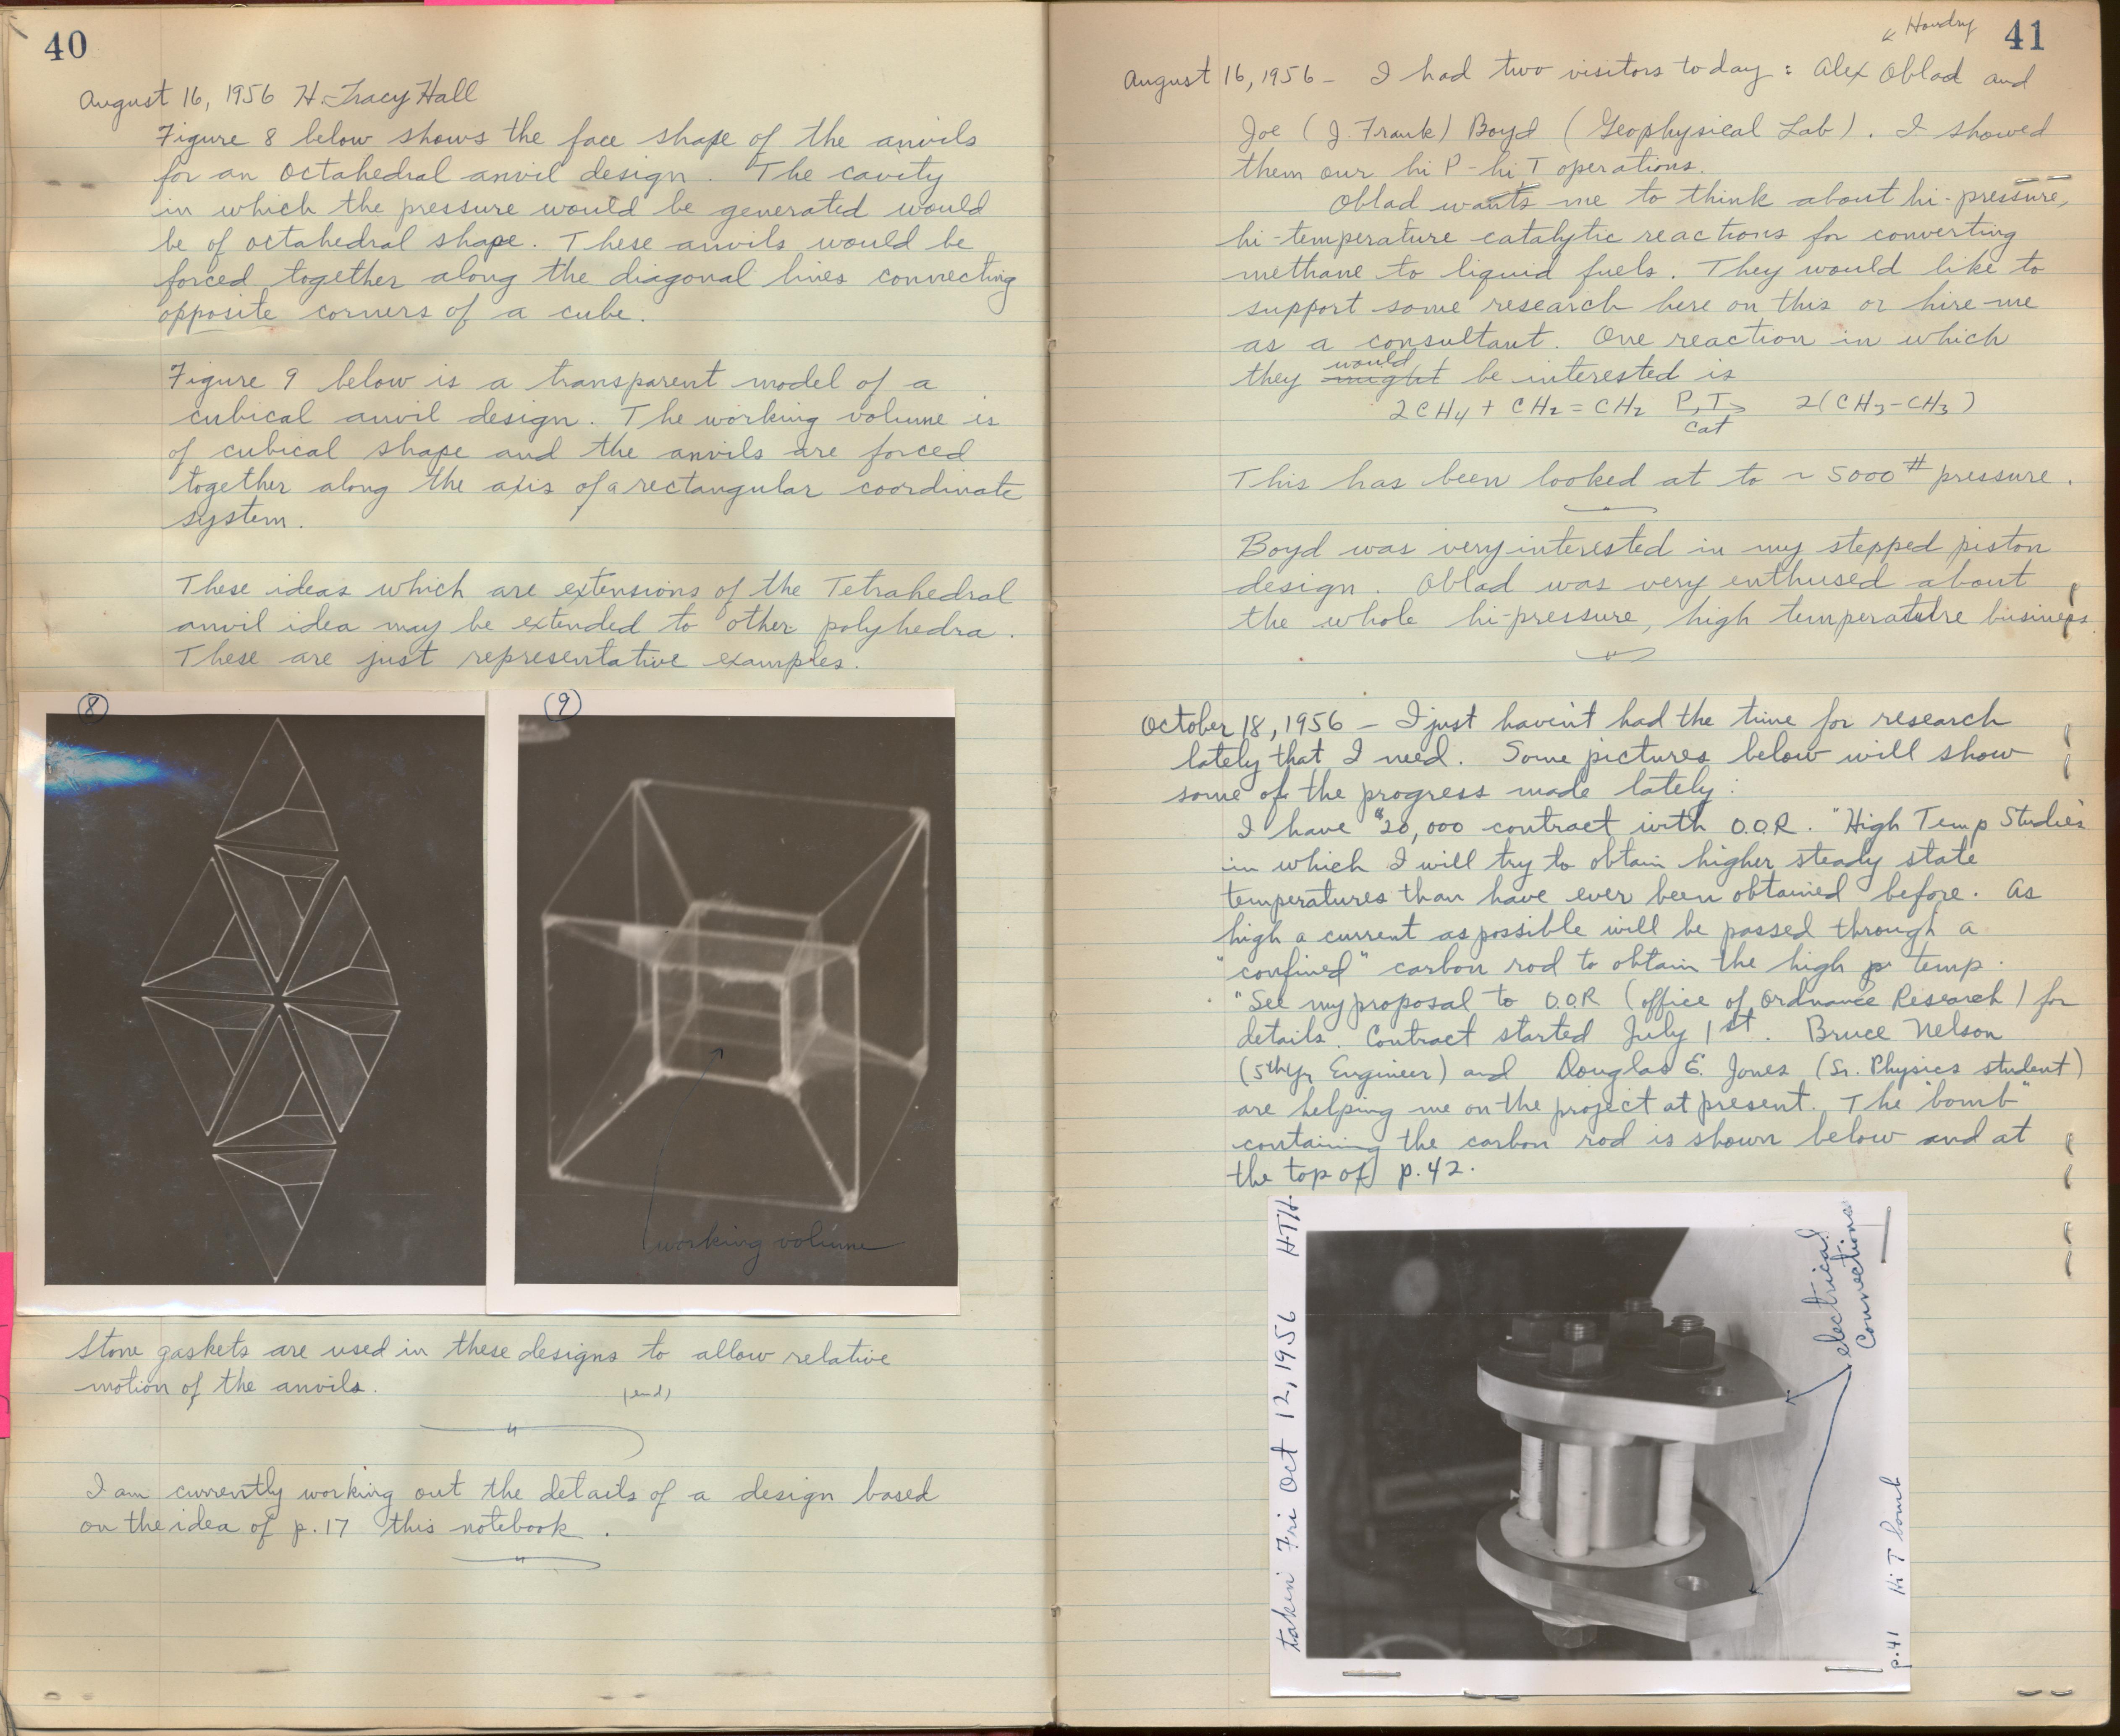 40
August 16, 1956 H. Tracy Hall
Figure 8 below shows the face shape of the anvils
for an octahedral anvil design. The cavity
in which the pressure would be generated would
be of octahedral shape. These anvils would be
forced together along the diagonal lines connecting
opposite corners of a cube.
Figure 9 below is a transparent model of a
cubical anvil design. The working volume is
of cubical shape and the anvils are forced
together along the axis of a rectangular coordinate
system.
These ideas which are extensions of the Tetrahedral
anvil idea may be extended to other polyhedra.
These are just representative examples.
8
9
working volume
Stone gaskets are used in these designs to allow relative
motion of the anvils.
(end)
I am currently working out the details of a design based
on the idea of p. 17 this notebook.
Houdry
41
August 16, 1956 – I had two visitors today: Alex Oblad and
Joe (J. Frank) Boyd (Geophysical Lab). I showed
them our hi P - hi T operations.
Oblad wants me to think about hi-pressure,
hi-temperature catalytic reactions for converting
methane to liquid fuels. They would like to
support some research here on this or hire me
as a consultant. One reaction in which
would
they might be interested is
2CH4 + CH2=CH2 P,T→ 2(CH3-CH3)
cat
This has been looked at to ~ 5000# pressure.
Boyd was very interested in my stepped piston
design. Oblad was very enthused about
the whole hi-pressure, high temperature business.
October 18, 1956 – I just haven't had the time for research
lately that I need. Some pictures below will show
some of the progress made lately:
I have $20,000 contract with O.O.R. "High Temp Studies
in which I will try to obtain higher steady state
temperatures than have ever been obtained before. As
high a current as possible will be passed through a
"confined" carbon rod to obtain the high temp.
"See my proposal to O.O.R (office of Ordnance Research) for
details. Contract started July 1st. Bruce Nelson
(5th yr Engineer) and Douglas E. Jones (Sr. Physics student)
are helping me on the project at present. The "bomb"
containing the carbon rod is shown below and at
the top of p. 42.
taken Fri Oct 12, 1956 HTH
electrical
connections
p. 41 Hi T bomb